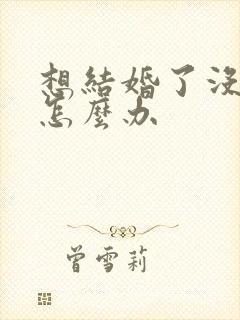 想結婚了沒
怎麼办
曾雪莉